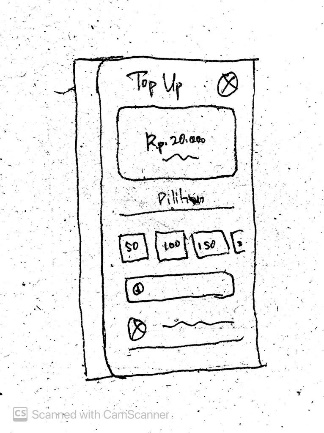 Top Up
Rp. 20.000
Pilihan
50 100 150
CS Scanned with CamScanner